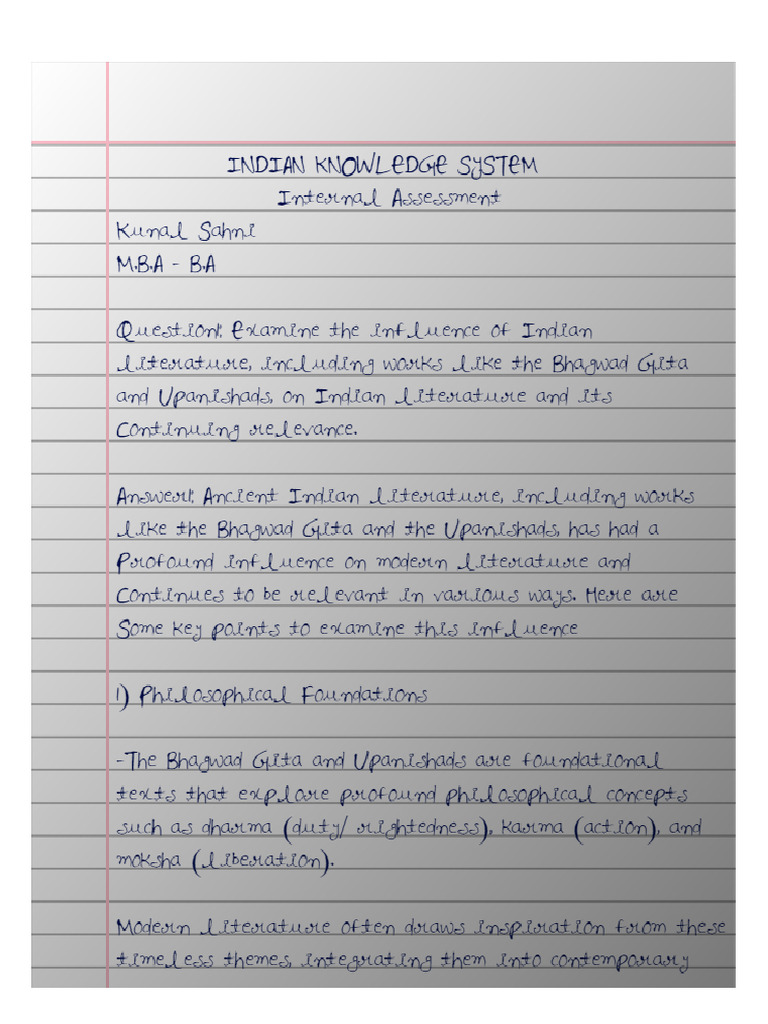 INDIAN KNOWLEDGE SYSTEM
Internal Assessment
Kunal Sahni
M.B.A - B.A
Question: Examine the influence of Indian
literature, including works like the Bhagwad Gita
and Upanishads, on Indian literature and its
Continuing relevance.
Answer: Ancient Indian literature, including works
like the Bhagwad Gita and the Upanishads, has had a
Profound influence on modern literature and
Continues to be relevant in various ways. Here are
Some key points to examine this influence
1) Philosophical Foundations
-The Bhagwad Gita and Upanishads are foundational
texts that explore profound philosophical concepts
such as dharma (duty/ rightedness), karma (action), and
moksha (liberation).
Modern literature often draws inspiration from these
timeless themes, integrating them into contemporary